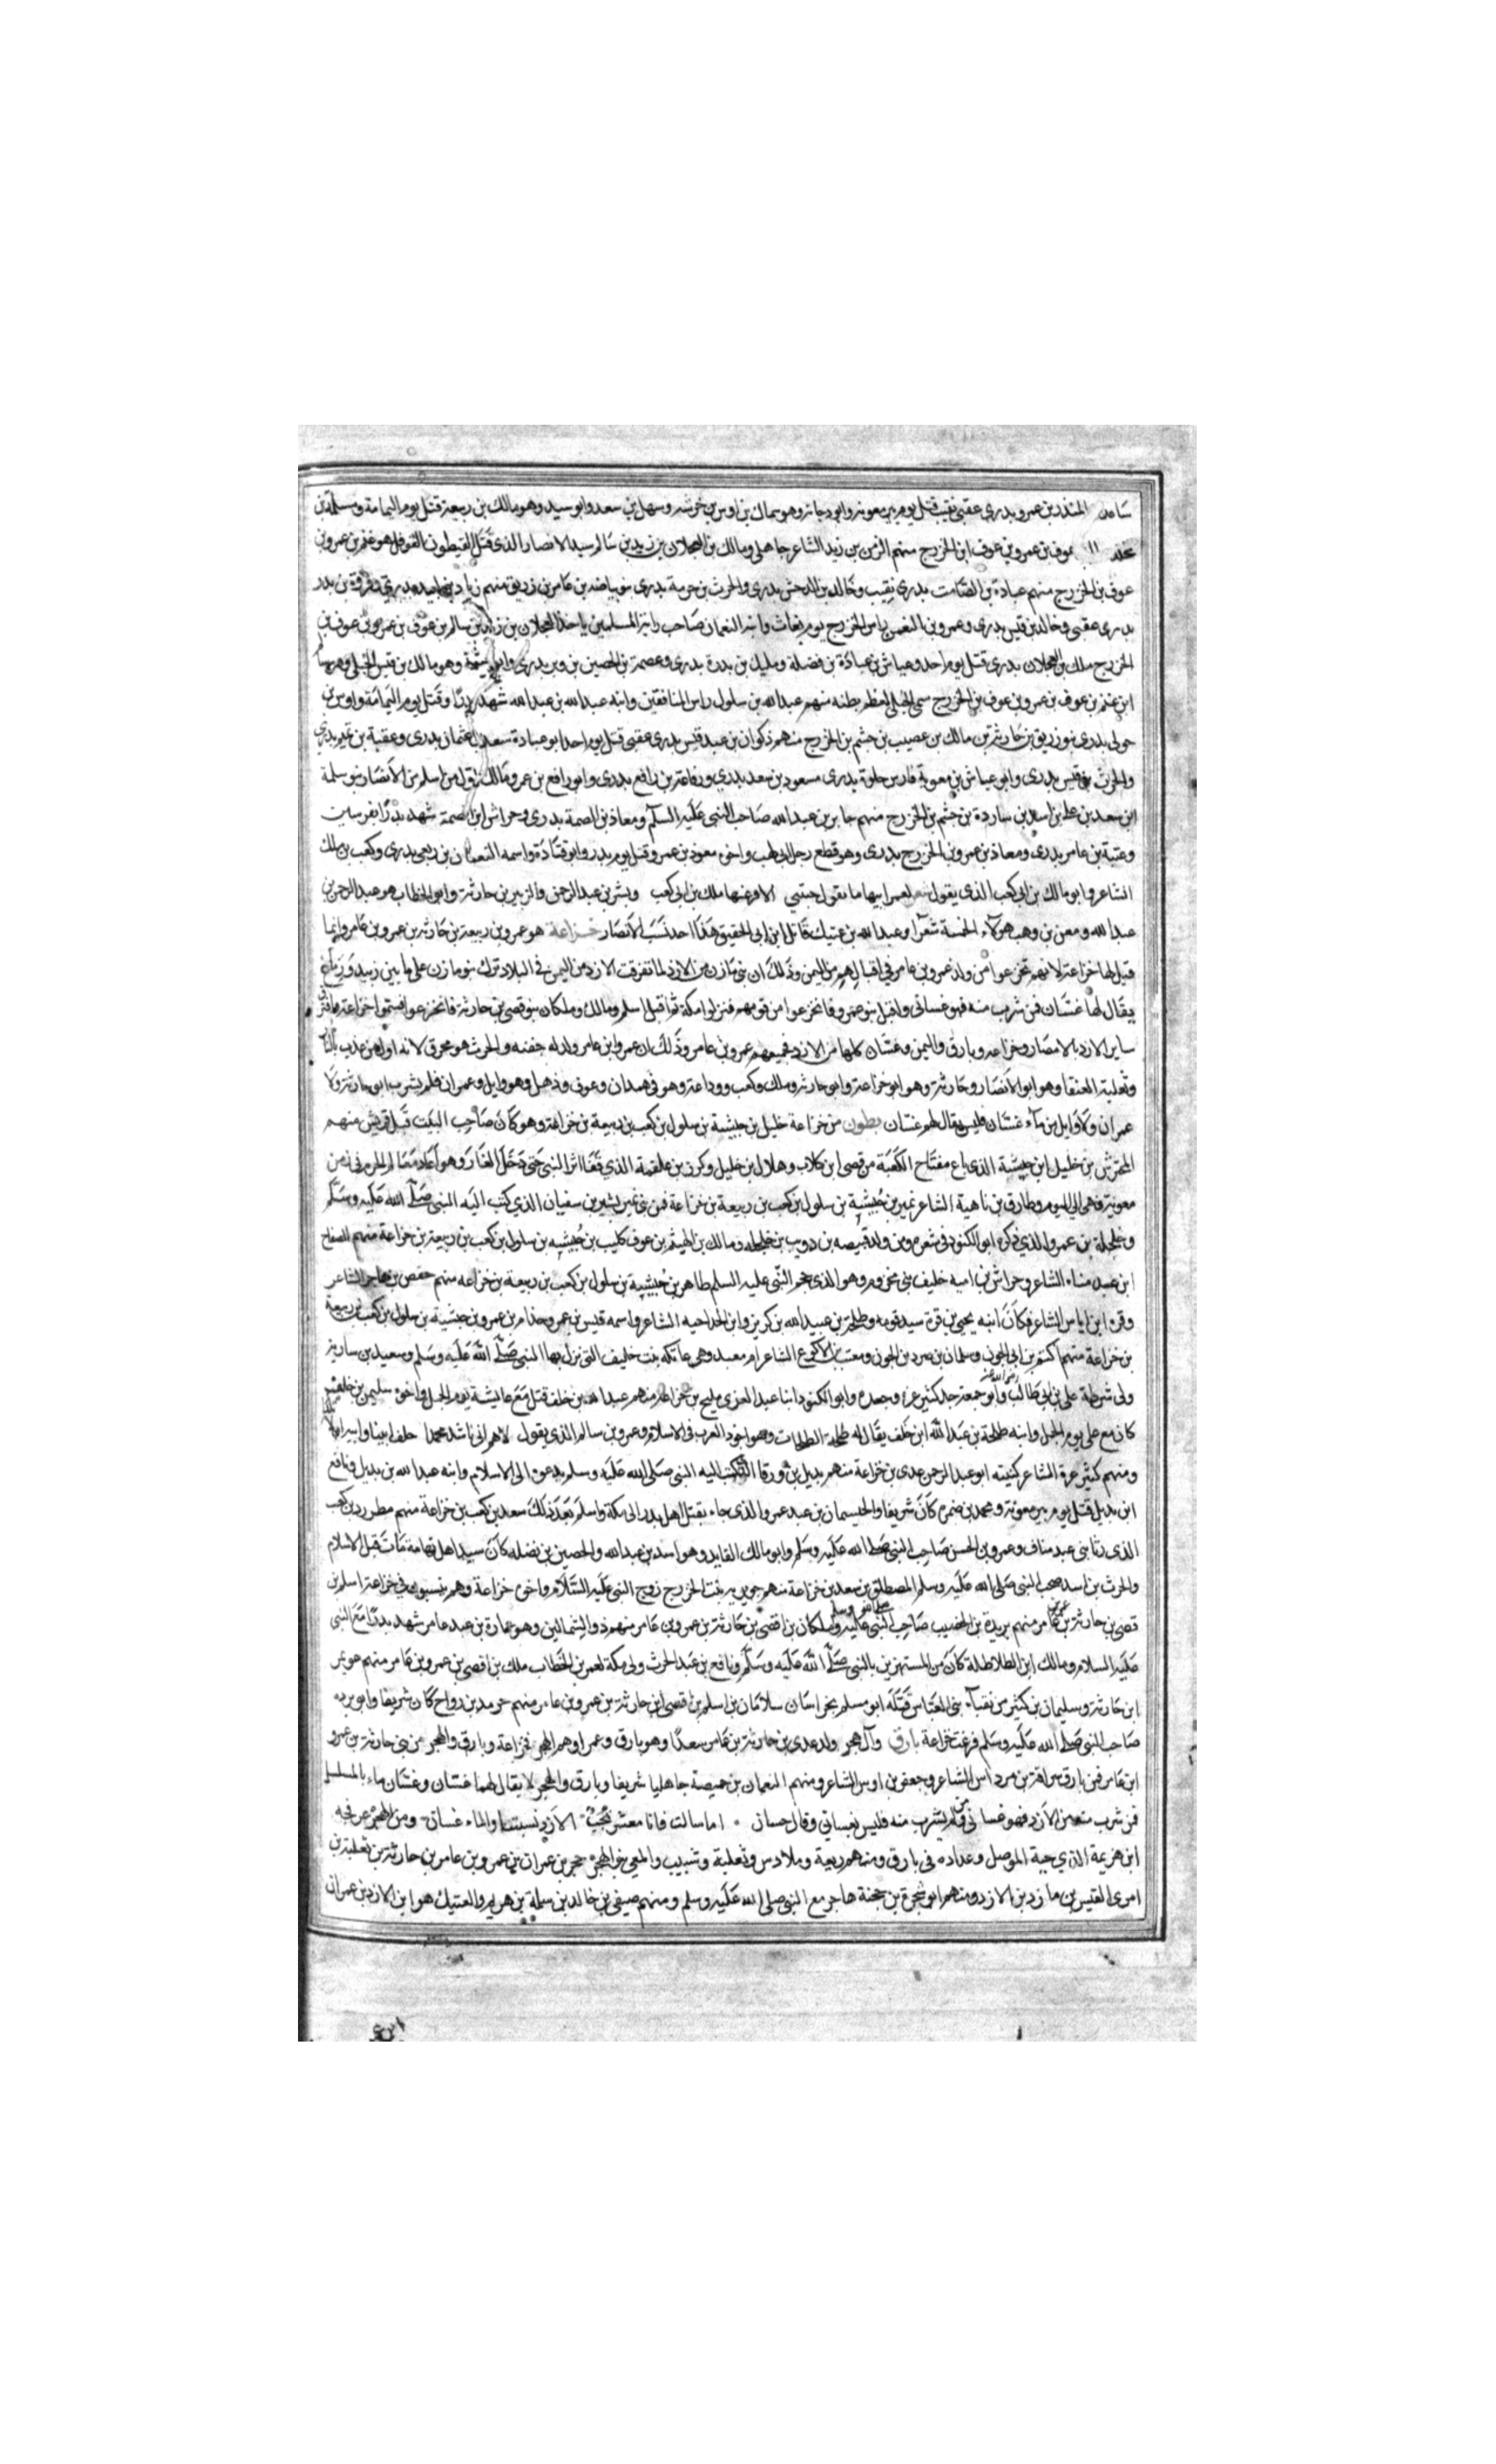 ساعدة المنذر بن عمرو بدرى عقبى نقيب قتل يوم بير معونة وابو دجانة وهو سماك بن اوس بن خرشه وسهل بن سعد وابو سيد وهو مالك بن ربيعة قتل يوم اليمامة ومسلمة بن
مخلد عوف بن عمرو بن عوف ابن الخزرج منهم الزمن بن زيد الشاعر جاهلى ومالك بن العجلان بن زيد بن سالم سيد الانصار الذى قتل القيطون القوقل هو غنم بن عمرو بن
عوف بن الخزرج منهم عبادة بن الصامت بدرى نقيب وخالد بن الدخش بدرى والحرث بن خزمة بدرى بنو بياضه بن عامر بن زريق منهم زياد بن لبيد بدرى وفروة بن بدر
بدرى عقبى وخالد بن قيس بدرى وعمرو بن النعمن راس الخزرج يوم بغاث وابنه النعمان صاحب راية المسلمين باحد العجلان بن زيد بن سالم بن عوف بن عمرو بن عوف بن
الخزرج ملك بن العجلان بدرى قتل يوم احد وعياش بن عبادة بن فضلة ومليل بن بدرة بدرى وعصمة بن الحصين بن وبر بدرى وابو خيثمة وهو مالك بن قيس الحبلى وهو سالم
ابن غنم بن عوف بن عمرو بن عوف بن الخزرج سمى الحبلى لعظم بطنه منهم عبد الله بن سلول راس المنافقين وابنه عبد الله بن عبد الله شهد بدرا وقتل يوم اليمامة واوس بن
خولى بدرى بنو زريق بن حارثة بن مالك بن عصيب بن جشم بن الخزرج منهم ذكوان بن عبد قيس بدرى عقبى قتل يوم احد ابو عبادة سعد بن عثمان بدرى وعقبة بن عمير بدرى
والحرث بن قيس بدرى وابو عياش بن معوية فارس حلوة بدرى مسعود بن سعد بدرى ورفاعة بن رافع بدرى وابو رافع بن عمرو مالك اول من اسلم من الانصار بنو سلمة
ابن سعد بن على بن اسد بن ساردة بن جشم بن الخزرج منهم جابر بن عبد الله صاحب النبى عليه السلم ومعاذ بن الصمة بدرى وخراش ابن الصمة شهد بدرا بفرسين
وعتبة بن عامر بدرى ومعاذ بن عمرو بن الخزرج بدرى وهو قطع رجل ابى لهب واخى معوذ بن عمرو قتل يوم بدر وابو قتادة واسمه النعمان بن ربعى بدرى وكعب بن ملك
الشاعر وابو مالك بن ابى كعب الذى يقول لعمر ابيها ما تقول حبتى الا فر عنها ملك بن ابى كعب وبشر بن عبد الرحمن والزبير بن حارثة وابو الخطاب هو عبد الرحمن بن
عبد الله ومعن بن وهب هولاء الخمسة شعراء وعبد الله بن عتيك قاتل ابن ابى الحقيق هذا احد نسب الانصار خزاعة هو عمرو بن ربيعة بن حارثة بن عمرو بن عامر وانما
قيل لها خزاعة لانهم تخزعوا من ولد عمرو بن عامر فى اقبالهم من اليمن وذلك ان بنى مازن من الازد لما تفرقت الازد من اليمن فى البلاد ترك بنو مازن على ما بين زبيد وزمع
يقال لها غسان فمن شرب منه فهو غسانى واقبل بنو عمرو فانخزعوا من قومهم فنزلوا مكة ثم اقبل اسلم ومالك وملكان بنو قصى بن حارثة فانخزعوا فسموا خزاعة وافترق
ساير الازد بالامصار وخزاعه وبارق واليمن وغسان كلها من الازد فجميعهم عمرو بن عامر وذلك ان عمرو ابن عامر ولد له جفنه والحرث هو محرق لانه اول من عذب بالنار
وثعلبة العنقا وهو ابو الانصار وحارثة وهو ابو خزاعة وابو حارثه وملك وكعب ووداعة وهو فى همدان وعوف وذهل وهو وايل وعمران فلم يشرب ابو حارثة ولا
عمران ولا وايل من مآء غسان فليس يقال لهم غسان بطون من خزاعة خليل بن حبشية بن سلول بن كعب بن ربيعة بن خزاعة وهو كان صاحب البيت قبل قريش منهم
المحترش بن خليل ابن حبشية الذى باع مفتاح الكعبة من قصى ابن كلاب وهلال بن خليل وكرز بن علقمة الذى قفا اثر النبى حتى دخل الغار وهو اعاد معالم الحرم فى زمن
معوية فهى الى اليوم وطارق بن ناهية الشاعر نمير بن حبشية بن سلول بن كعب بن ربيعة بن خزاعة فمن بنى نمير بشير بن سفيان الذى كتب اليه النبى صلى الله عليه وسلم
وحلحلة بن عمرو الذى ذكره ابو الكنود فى شعره ومن ولده قبيصه بن ذويب بن حلحله ومالك بن الهيثم بن عوف كليب بن حبشيه بن سلول بن كعب بن ربيعة بن خزاعة منهم السفاح
ابن عبد مناه الشاعر وخراش بن اميه خليف بنى مخزوم وهو الذى حجم النبى عليه السلم طاهر بن حبشية بن سلول بن كعب بن ربيعة بن خزاعه منهم حفص بن هاجر الشاعر
وقره ابن اياس الشاعر فكان ابنه يحيى بن قرة سيد قومه وطلحة بن عبيد الله بن كريز وابن الحداحيه الشاعر واسمه قيس بن عمرو حذام بن عمرو بن حبشية بن سلول بن كعب بن ربيعة
بن خزاعة منهم اكثم بن ابى الجون وسلمان بن صرد بن الجون ومعتب بن الاكوع الشاعر ام معبد وهى عاتكه بنت خليف التى نزل بها النبى صلى الله عليه وسلم وسعيد بن سارية
ولى شرطة على بن ابى طالب وابو جمعة جد كثير عزه وجعده وابو الكنود ابنا عبد العزى مليح بن خزاعة منهم عبد الله بن خلف قتل مع عايشة يوم الجمل واخوه سليمن بن خلف
كان مع على يوم الجمل وابنه طلحة بن عبد الله ابن خلف يقال له طلحة الطلحات وهو اجود العرب فى الاسلام وعمرو بن سالم الذى يقول لاهم انى ناشد محمدا حلف ابينا وابيه الاتلد
ومنهم كثير عزة الشاعر كنيته ابو عبد الرحمن عدى بن خزاعة منهم بديل بن ورقا الذى كتب اليه النبى صلى الله عليه وسلم يدعوه الى الاسلام وابنه عبد الله بن بديل ونافع
ابن بديل قتل يوم بير معونة ومحمد بن ضمره كان شريفا والحيسمان بن عبد عمرو الذى جاء بقتل اهل بدر الى مكة واسلم بعد ذلك سعد بن كعب بن خزاعة منهم مطرود بن كعب
الذى رثا بنى عبد مناف وعمرو بن الحسن صاحب النبى صلى الله عليه وسلم وابو مالك القايد وهو اسد بن عبد الله والحصين بن نضله كان سيد اهل تهامة مات قبل الاسلام
والحرث بن اسد صحب النبى صلى الله عليه وسلم المصطلق بن سعد بن خزاعة منهم جويريه بنت الخزرج زوج النبى عليه السلام واخوه خزاعة وهم ينسبون فى خزاعة اسلم بن
قصى بن حارثة بن عمرو بن عامر منهم بريدة بن الخصيب صاحب النبى صلى الله عليه وسلم ملكان بن اقصى بن حارثة بن عمرو بن عامر منهم ذو الشمالين وهو عمارة بن عبد عامر شهد بدرا مع النبى
عليه السلام ومالك ابن الطلاطلة كان من المستهزين بالنبى صلى الله عليه وسلم ونافع بن عبد الحرث ولى مكة لعمر بن الخطاب ملك بن اقصى بن عمرو بن عامر منهم عويمر
ابن حارثة وسليمان بن كثير من نقبآء بنى العباس قتله ابو مسلم بخراسان سلامان بن اسلم بن اقصى ابن حارثة بن عمرو بن عامر منهم جرهد بن رواح كان شريفا وابو برده
صاحب النبى صلى الله عليه وسلم فرغت خزاعة بارق وآل هجر ولد عدى بن حارثة بن عامر سعدا وهو بارق وعمراً وهم الهجر فخزاعة وبارق والهجر من بنى حارثة بن عمرو
ابن عامر فمن بارق سراقة بن مرداس الشاعر وجعفر بن اوس الشاعر ومنهم النعمان بن خميصة جاهليا شريفا وبارق والهجر لا يقال لهما غسان وغسان ماء بالمسلسل
فمن شرب منه من الازد فهو غسانى ومن لم يشرب منه فليس بغسانى وقال حسان اما سالت فانا معشر نجب الازد نسبتنا والماء غسان ومن الهجر عرفجه
ابن هزيمة الذى حية الموصل وعداده فى بارق ومنهم ربيعة وملادس وثعلبة وشبيب والمعى خوالهجر حجر بن عمران بن عمرو بن عامر بن حارثة بن ثعلبة بن
امرى القيس بن مازد بن الازد ومنهم ابو شجرة بن حجنة هاجر مع النبى صلى الله عليه وسلم ومنهم صيفى بن خالد بن سلمة بن هريم والعتيك هو ابن الازد بن عمران